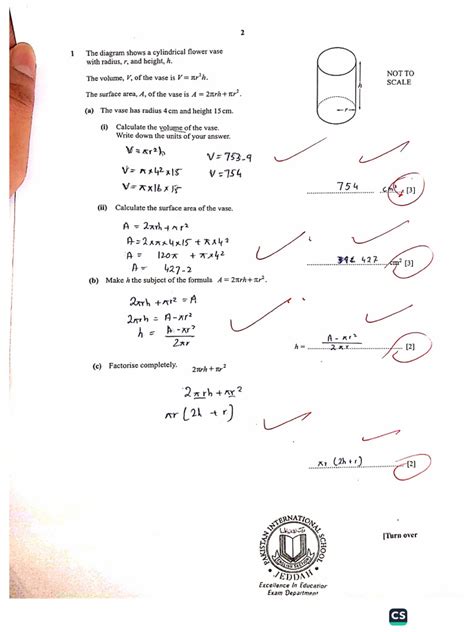 2
1 The diagram shows a cylindrical flower vase
with radius, r, and height, h.
The volume, V, of the vase is V = πr²h.
The surface area, A, of the vase is A = 2πrh + πr².
NOT TO
SCALE
h
r
(a) The vase has radius 4 cm and height 15 cm.
(i) Calculate the volume of the vase.
Write down the units of your answer.
V = πr²h
V = 753.9
V = π x 4² x 15
V = 754
V = π x 16 x 15
754 [3]
(ii) Calculate the surface area of the vase.
A = 2πrh + πr²
A = 2xπx4x15 + πx4²
A = 120π + πx4²
A = 427.2
427 cm² [3]
(b) Make h the subject of the formula A = 2πrh + πr².
2πrh + πr² = A
2πrh = A - πr²
h = A - πr²
2πr
h = A - πr²
2πr
[2]
(c) Factorise completely.
2πrh + πr²
2πrh + πr²
πr (2h + r)
πr (2h + r) [2]
[Turn over
PAKISTAN INTERNATIONAL SCHOOL
ENGLISH SECTION
JEDDAH
Excellence In Education
Exam Department
CS